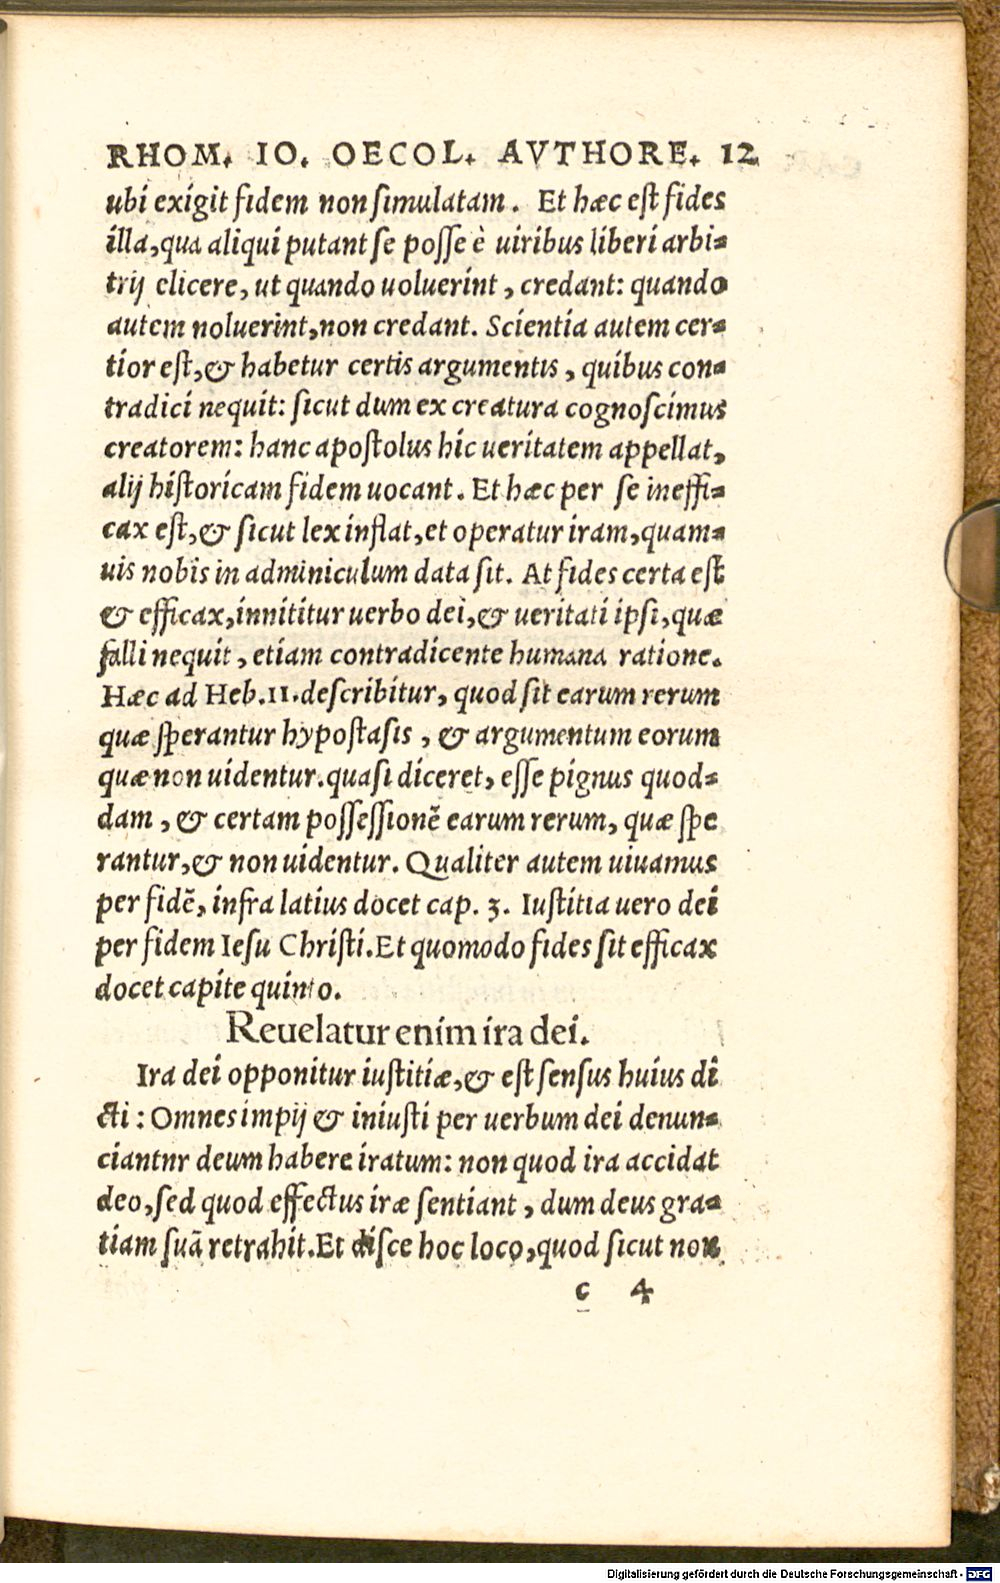 RHOM. IO. OECOL. AVTHORE. 12
ubi exigit fidem non ſimulatam. Et hæc eſt fides
illa, qua aliqui putant ſe poſſe è uiribus liberi arbi-
trij elicere, ut quando uoluerint, credant: quando
autem noluerint, non credant. Scientia autem cer-
tior eſt, & habetur certis argumentis, quibus con-
tradici nequit: ſicut dum ex creatura cognoſcimus
creatorem: hanc apoſtolus hic ueritatem appellat,
alij hiſtoricam fidem uocant. Et hæc per ſe ineffi-
cax eſt, & ſicut lex inflat, et operatur iram, quam-
uis nobis in adminiculum data ſit. At fides certa eſt
& efficax, innititur uerbo dei, & ueritati ipſi, quæ
falli nequit, etiam contradicente humana ratione.
Hæc ad Heb. 11. deſcribitur, quod ſit earum rerum
quæ ſperantur hypoſtaſis, & argumentum eorum
quæ non uidentur. quaſi diceret, eſſe pignus quod-
dam, & certam poſſeſſionē earum rerum, quæ ſpe
rantur, & non uidentur. Qualiter autem uiuamus
per fidē, infra latius docet cap. 3. Iuſtitia uero dei
per fidem Ieſu Chriſti. Et quomodo fides ſit efficax
docet capite quinto.
Reuelatur enim ira dei.
Ira dei opponitur iuſtitiæ, & eſt ſenſus huius di
cti: Omnes impij & iniuſti per uerbum dei denun-
ciantnr deum habere iratum: non quod ira accidat
deo, ſed quod effectus iræ ſentiant, dum deus gra-
tiam ſuā retrahit. Et diſce hoc loco, quod ſicut non
c 4
Digitalisierung gefördert durch die Deutsche Forschungsgemeinschaft - DFG